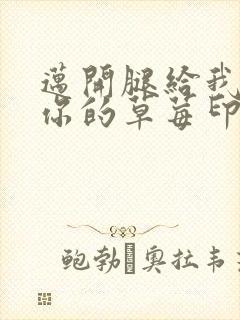 邁開腿給我
你的草莓印
鲍勃·奥拉韦